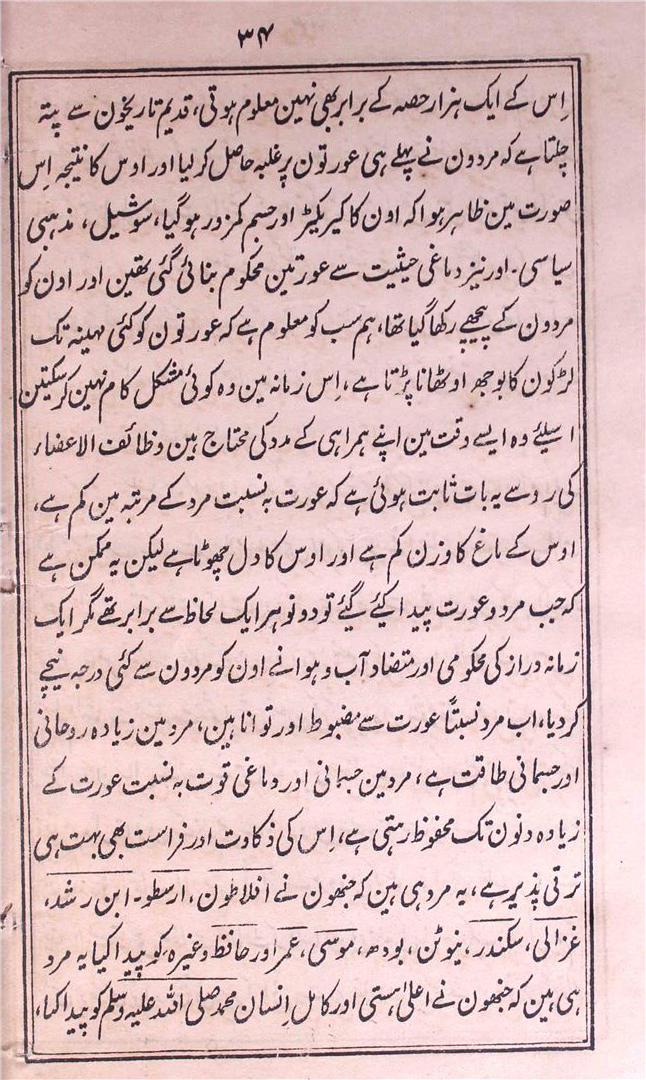 ۳۴
اِس کے ایک ہزار حصہ کے برابر بھی نہین معلوم ہوتی، قدیم تاریخون سے پتہ
چلتا ہے کہ مردون نے پہلے ہی عورتون پر غلبہ حاصل کر لیا اور اوس کا نتیجہ اِس
صورت مین ظاہر ہوا کہ اون کا کیریکٹر اور جسم کمزور ہو گیا، سوشیل، مذہبی
سیاسی۔ اور نیز دماغی حیثیت سے عورتین محکوم بنائی گئی تھین اور اون کو
مردون کے پیچھے رکھا گیا تھا، ہم سب کو معلوم ہے کہ عورتون کو کئی مہینہ تک
لڑکون کا بوجھ اوٹھانا پڑتا ہے، اِس زمانہ مین وہ کوئی مشکل کام نہین کر سکتین
اسلیئے وہ ایسے وقت مین اپنے ہمراہی کے مدد کی محتاج ہین وظائف الاعضاء
کی رو سے یہ بات ثابت ہوئی ہے کہ عورت بہ نسبت مرد کے مرتبہ مین کم ہے،
اوس کے ماغ کا وزن کم ہے اور اوس کا دل چھوٹا ہے لیکن یہ ممکن ہے
کہ جب مرد و عورت پیدا کیئے گیئے تو دونو ہر ایک لحاظ سے برابر تھے مگر ایک
زمانہ دراز کی محکومی اور متضاد آب و ہوا نے اون کو مردون سے کئی درجہ نیچے
کر دیا، اب مرد نسبتاً عورت سے مضبوط اور توانا ہین، مرد مین زیادہ روحانی
اور جسمانی طاقت ہے، مرد مین جسمانی اور دماغی قوت بہ نسبت عورت کے
زیادہ دنون تک محفوظ رہتی ہے، اِس کی ذکاوت اور فراست بھی بہت ہی
ترقی پذیر ہے، یہ مرد ہی ہین کہ جنھون نے افلاطون، ارسطو۔ ابن رشد،
غزالی، سکندر، نیوٹن، بودھ، موسی، عمر اور حافظ وغیرہ کو پیدا کیا یہ مرد
ہی ہین کہ جنھون نے اعلیٰ ہستی اور کامل اِنسان محمد صلی اللہ علیہ وسلم کو پیدا کیا،